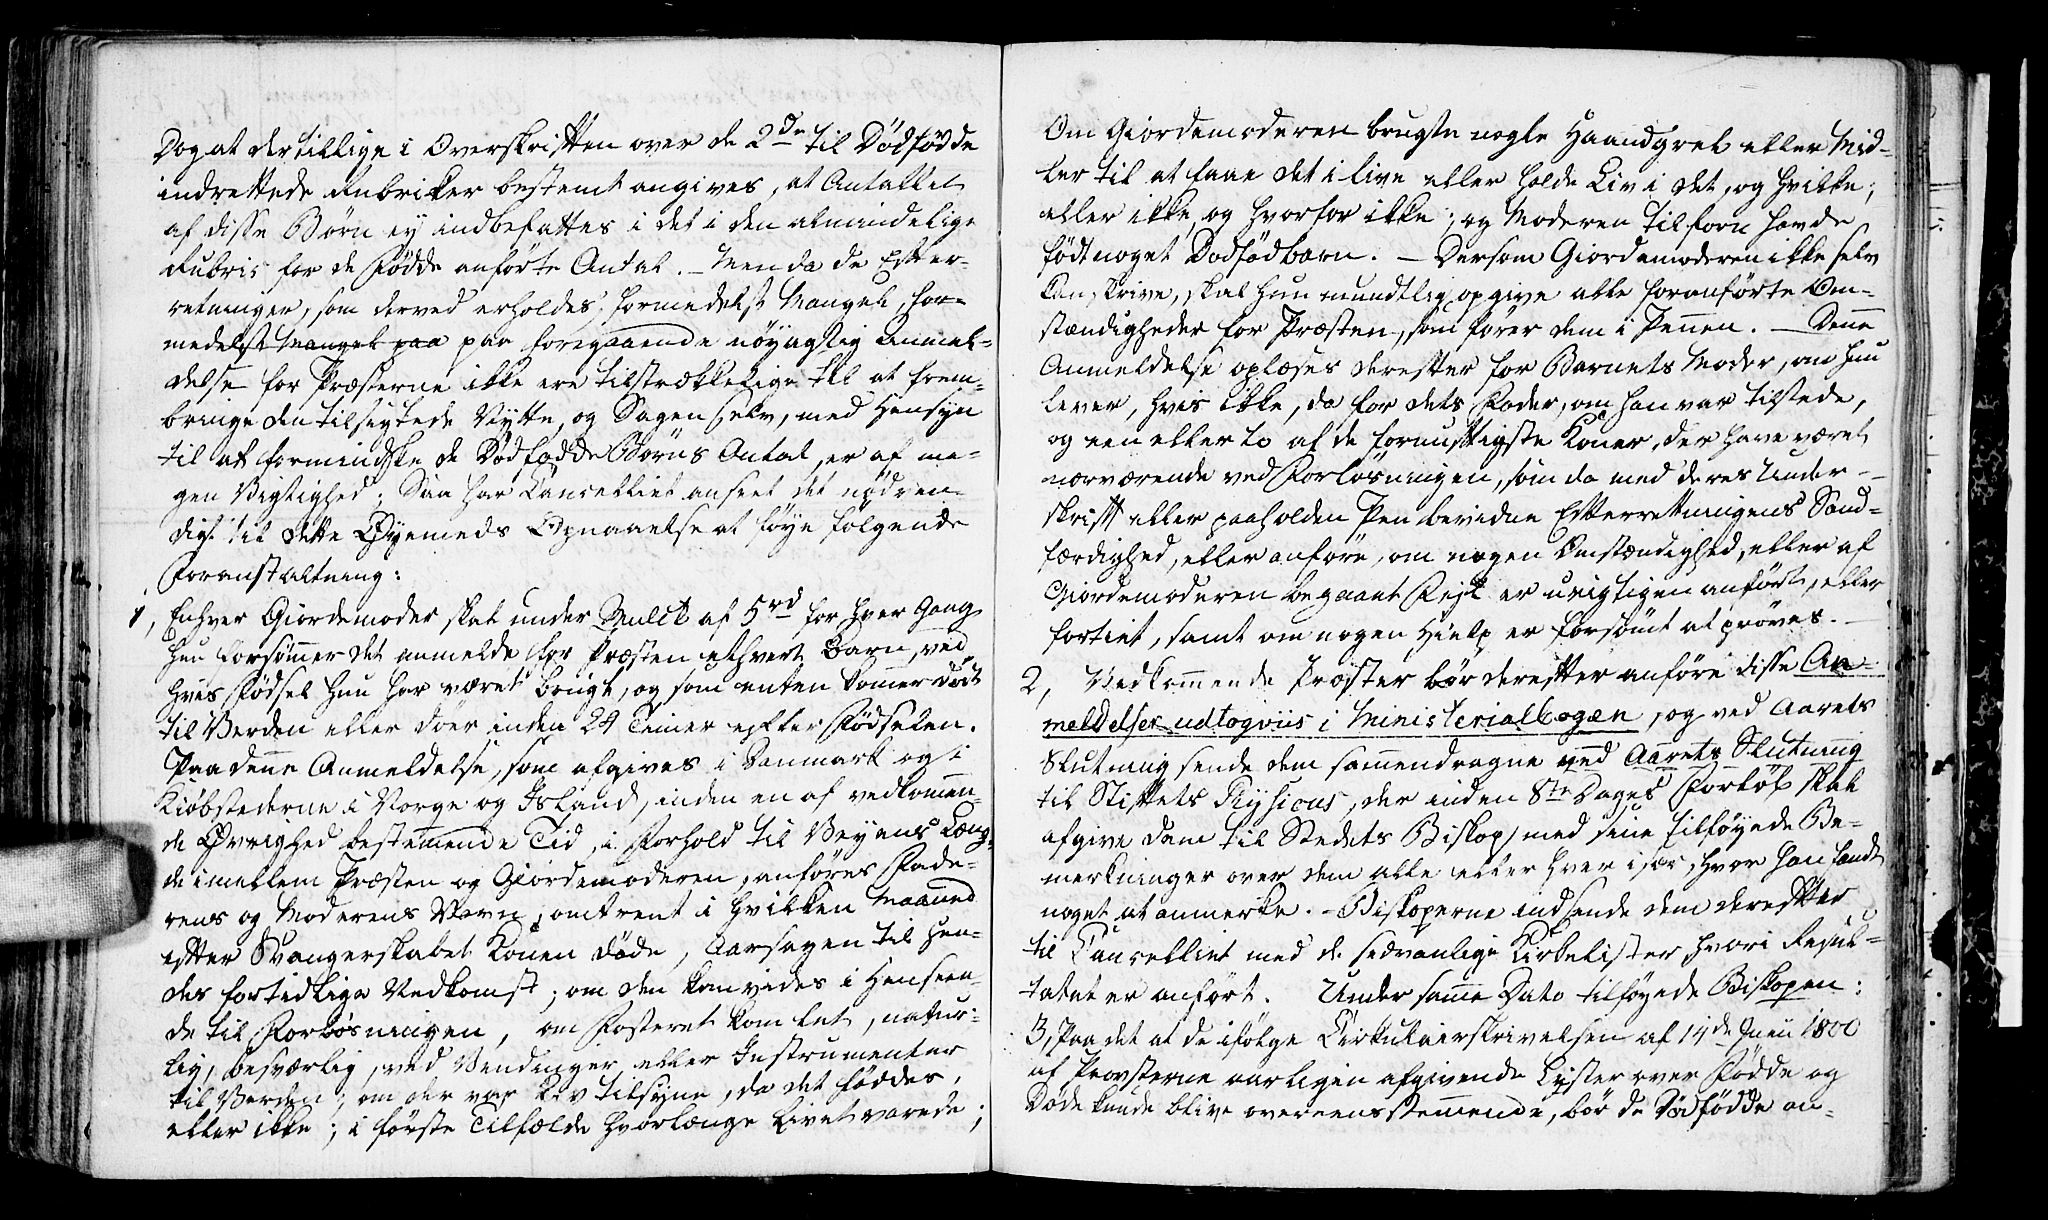 Dog at der tillige i Overskriften over de 2de til Dödfödde
indrettede Rubriker bestemt angives, at Antallet
af disse Börn ey indbefattes i det i den almindelige
Rubrik for de Födde anförte Antal. – Men da de Efter-
retninger, som derved erholdes, formedelst Mangel, for-
medelst Mangel paa paa foregaaende nöyagtig Anmel-
delse for Præsterne ikke ere tilstrækkelige til at frem-
bringe den tilsigtede Nytte, og Sagen selv, med Hensyn
til at formindske de Dödfödde Börns Antal, er af me-
gen Vigtighed; Saa har Cancelliet anseet det nödven-
digt til dette Öyemeds Opnaaelse at föye fölgende
Foranstaltning:
1, Enhver Giordemoder skal under Mulct af 5rd for hver Gang
hun forsömer det anmelde for Præsten ethvert Barn, ved
hvis Födsel hun har været brugt, og som enten komer dödt
til Verden eller döer inden 24 Timer efter Födselen.
Paa dene Anmeldelse, som afgives i Danmark og i
Kiöbstederne i Norge og Island, inden en af vedkomen-
de Övrighed bestemende Tid, i Forhold til Veyens Læng-
de imellem Præsten og Giordemoderen, anföres Fade-
rens og Moderens Navn, omtrent i hvilken Maaned
efter Svangerskabet Konen döde, Aarsagen til hen-
des fortidlige Nedkomst, om den kan vides i Henseen-
de til Forlösningen, om Fosteret kom let, natur-
lig, besværlig, ved Vendinger eller Instrumenter
til Verden; om der var Liv tilsyne, da det föddes,
eller ikke; i förste Tilfælde hvorlænge Livet varede;
Om Giordemoderen brugte nogle Haandgreb eller Mid-
ler til at faae det i live eller holde Liv i det, og hvilke;
eller ikke, og hvorfor ikke; og Moderen tilforn havde
födt noget Dödfödbarn. – Dersom Giordemoderen ikke selv
kan skrive, skal hun mundtlig opgive alle foranförte Om-
stændigheder for Præsten, som förer dem i Penen. – Dene
Anmeldelse oplæses derefter for Barnets Moder, om hun
lever, hvis ikke, da for dets Fader, om han var tilstede,
og een eller to af de fornuftigste Koner, der have været
nærværende ved Forlösningen, som da med deres Under-
skrift eller paaholden Pen bevidne Efterretningens Sand-
færdighed, eller anföre, om nogen Omstændighed, eller af
Giordemoderen begaaet Fejl er urigtigen anfört, eller
fortiet, samt om nogen Hielp er forsömt at pröves. –
2, Vedkomende Præster bör derefter anföre disse An-
meldelser udtogviis i Ministerialbogen, og ved Aarets
Slutning sende dem samendragne ved Aarets Slutning
til Stiftets Physicus, der inden 8te Dages Forlöb skal
afgive dem til Stedets Biskop, med sine tilföyede Be-
merkninger over dem alle eller hver især, hvor han fandt
noget at anmerke. – Biskoperne indsende dem derefter
til Cancelliet med de sædvanlige Kirkelister hvori Resul-
tatet er anfört. Under same Dato tilföyede Biskopen:
3, Paa det at de ifölge Cirkulairskrivelsen af 14de Juni 1800
af Provsterne aarligen afgivende Lister over Födde og
Döde kunde blive overeensstemende, bör de Dödfödde an-